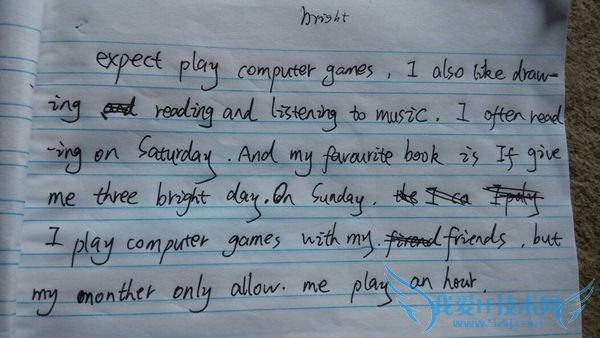 bright
expect play computer games, I also like draw-
ing and reading and listening to music. I often read
-ing on Saturday. And my favourite book is If give
me three bright day. On Sunday, the I ca I play
I play computer games with my friend friends, but
my monther only allow. me play an hour.
我爱IT技术网